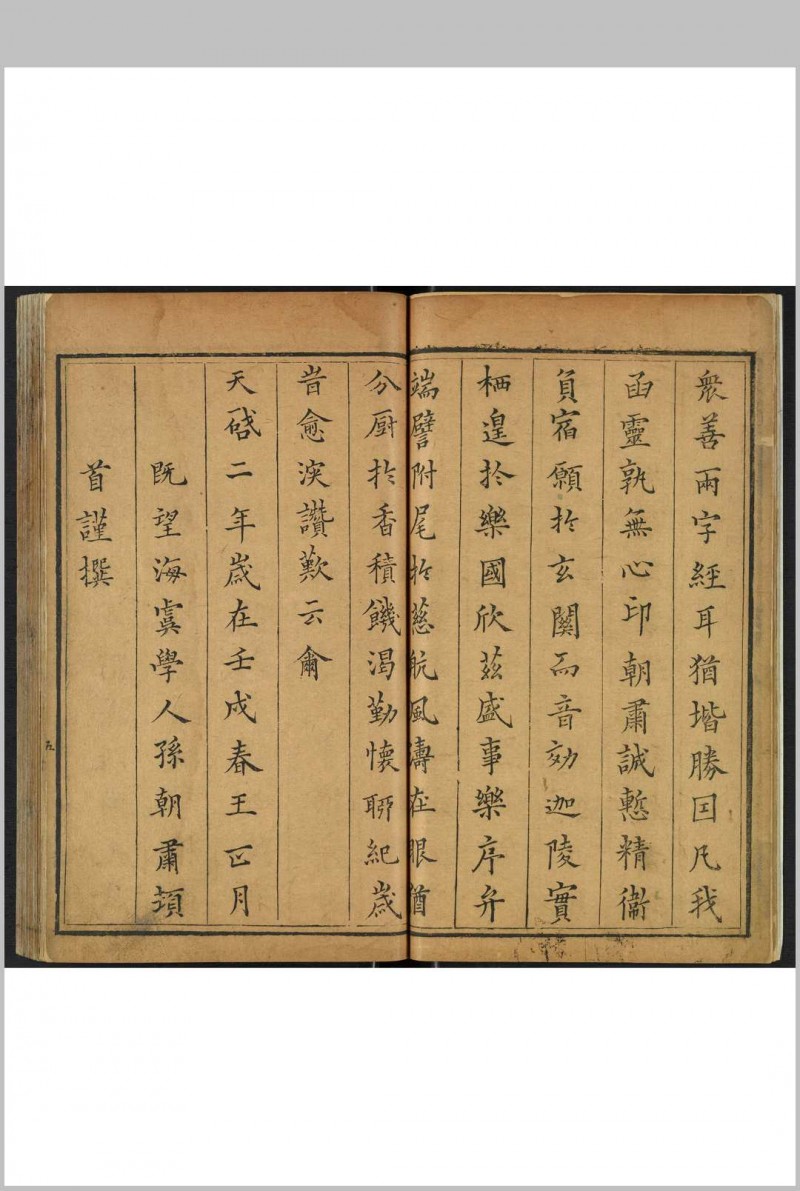 衆善兩字經耳猶堦勝因凡我
函靈孰無心印朝肅誠慙精衞
負宿願扵玄關而音効迦陵實
栖遑扵樂國欣茲盛事樂序弁
端譬附尾扵慈航風濤在眼猶
分厨扵香積饑渴勤懐聊紀歳
昔愈深讚歎云爾
天啓二年歳在壬戌春王正月
既望海虞學人孫朝肅頓
首謹撰
五